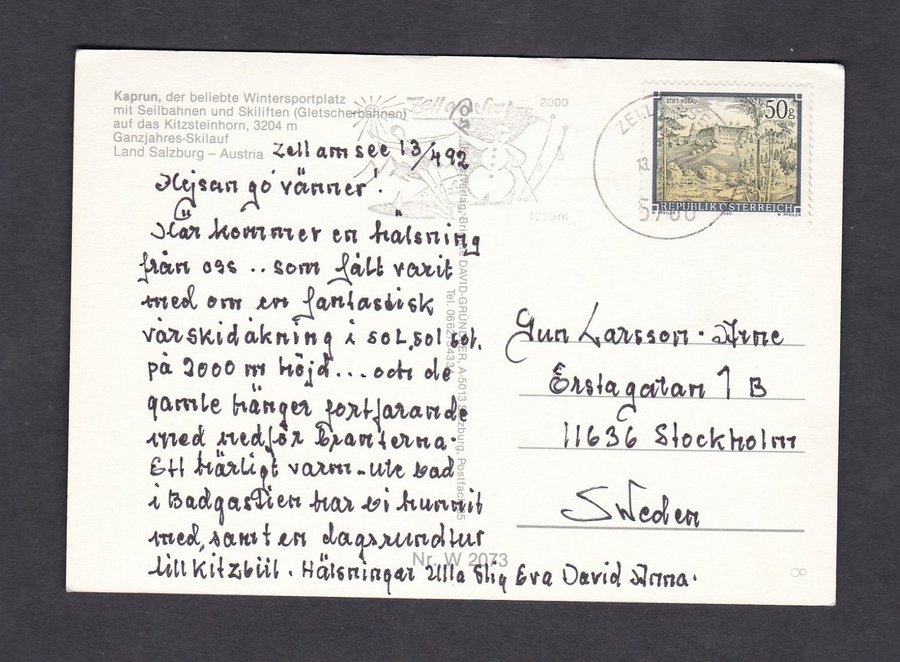 Kaprun, der beliebte Wintersportplatz
mit Seilbahnen und Skiliften (Gletscherbahnen)
auf das Kitzsteinhorn, 3204 m
Ganzjahres-Skilauf
Land Salzburg – Austria
Zell am see 13/4 92
Hejsan go' vänner!
Här kommer en hälsning
från oss .. som fått varit
med om en fantastisk
vårskidåkning i sol, sol sol.
på 2000 m höjd... och de
gamle hänger fortfarande
med nedför branterna.
Ett härligt varm-ute bad
i Badgastien har vi hunnit
med, samt en dagsrundtur
till Kitzbüil. Hälsningar Ulla Stig Eva David Anna.
Nr. W 2073
DAVID-GRÜNDLER, A-5013 Salzburg, Postfach
Tel. 0662
Zell am See
2000
ZELL
SEE
13.
5700
STIFT VORAU
50g
REPUBLIK ÖSTERREICH
PFEILER
1990
W. PFEILER
Gun Larsson - Arne
Erstagatan 1 B
11636 Stockholm
Sweden